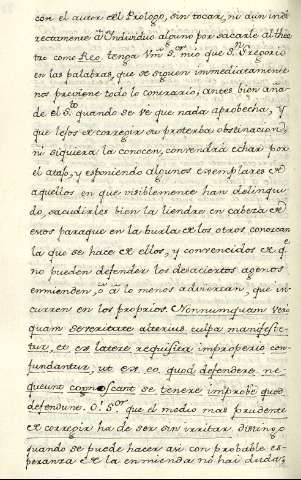 con el autor del Prologo, sin tocar, ni aun indi
rectamente à Individuo alguno por sacarle al thea
tro como Reo, tenga Vmd S.or mio que S.n Gregorio
en las palabras, que se siguen immediatamente
nos previene todo lo contrario, antes bien aña
de el S.to quando se ve que nada aprobecha, y
que lejos de corregir su proterba obstinacion,
ni siquiera la conocen, convendrá echar por
el atajo, y esponiendo algunos exemplares de
aquellos en que visiblemente han delinqui
do, sacudirles bien la liendre en cabeza de
estos paraque en la burla de los otros conozcan
la que se hace de ellos, y convencidos de q.e
no pueden defender los desaciertos agenos
enmienden, ò à lo menos adviertan, que in
curren en los proprios. Nonnumquam vero
quum severitate alterius culpa
tur, et ex latere requisita improperio con
fundantur, ut ex eo quod defendere ne
queunt cognoscant se tenere improbe quod
defendunt. O! S.or que el medio mas prudente
de corregir ha de ser sin irritar distingo,
quando se puede hacer asi con probable es
peranza de la enmienda no hai duda;